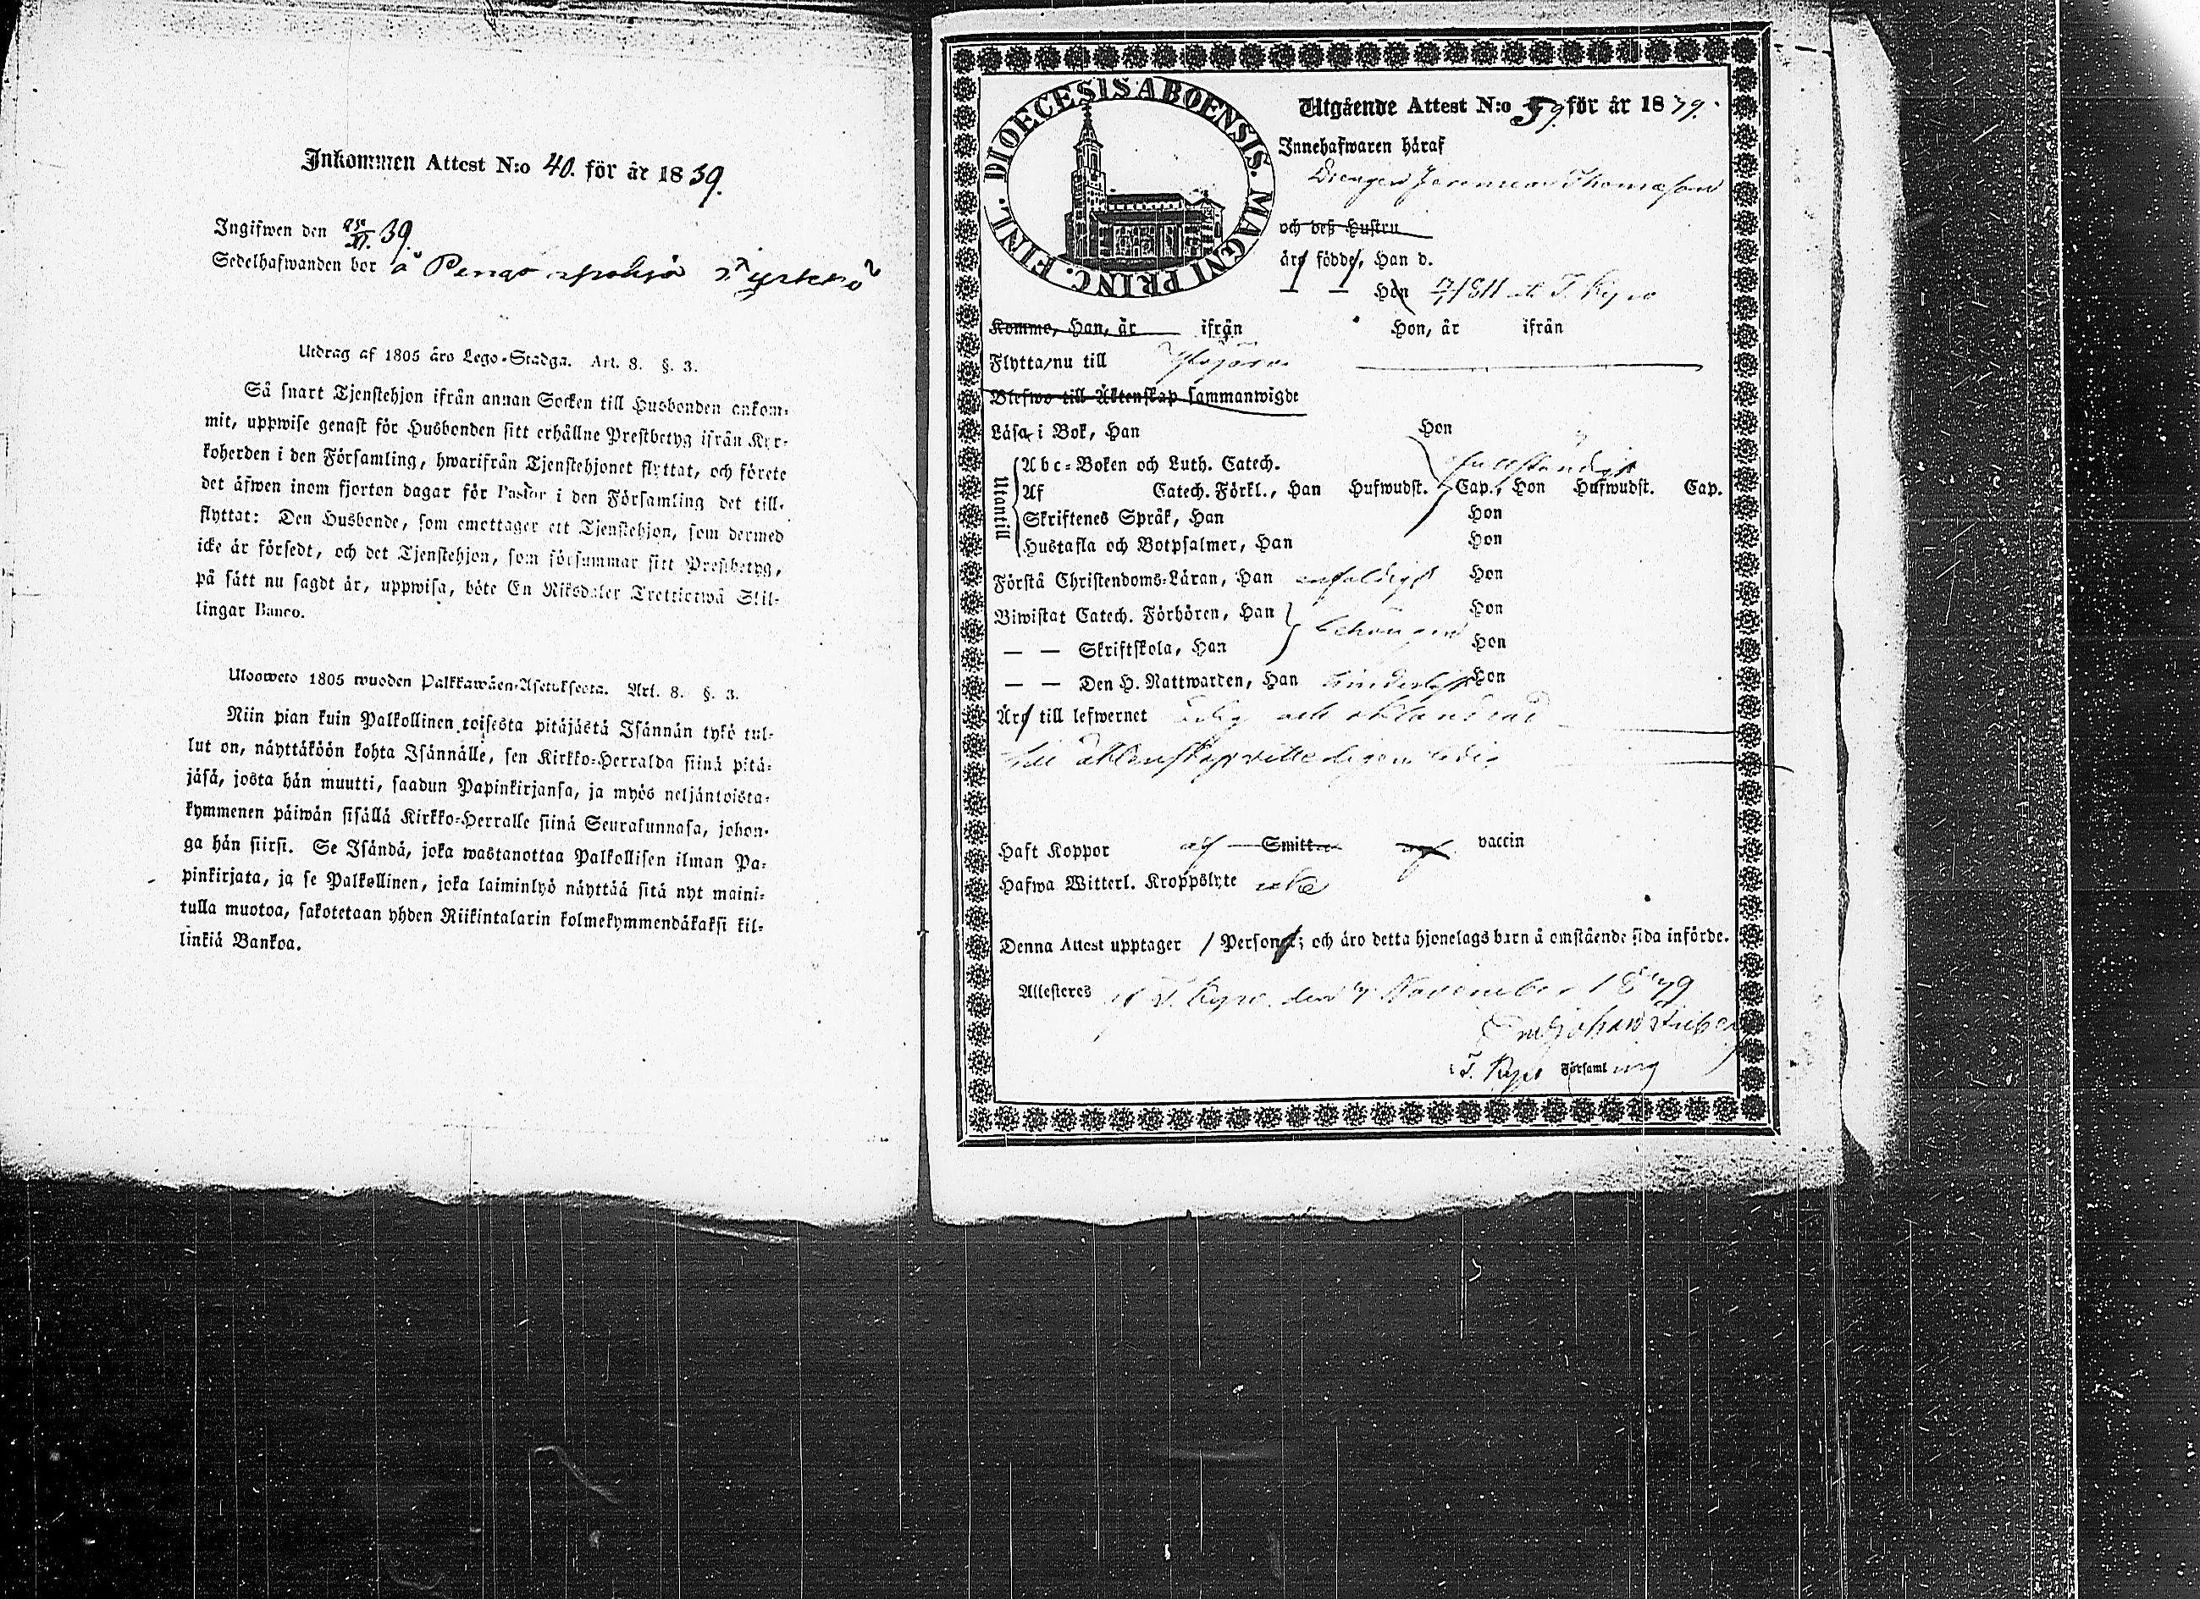 Inkommen Attest N:o 40. för år 1839.
Ingifwen den 39.
Sedelhafwanden bor å
Utdrag af 1805 års Lego-Stadga. Art. 8. §. 3.
Så snart Tjenstehjon ifrån annan Socken till Husbonden ankom-
mit, uppwise genast för Husbonden sitt erhållne Prestbetyg ifrån Kyr-
koherden i den Församling, hwarifrån Tjenstehjonet flyttat, och förete
det äfwen inom fjorton dagar för Pastor i den Församling det till-
flyttat: Den Husbonde, som emottager ett Tjenstehjon, som dermed
icke är försedt, och det Tjenstehjon, som försummar sitt Prestbetyg,
på sätt nu sagdt är, uppwisa, böte En Riksdaler Trettiotwå Skil-
lingar Banco.
Ulosweto 1805 wuoden Palkkawäen-Asetuksesta. Art. 8. §. 3.
Niin pian kuin Palkollinen toisesta pitäjästä Isännän tykö tul-
lut on, näyttäköön kohta Isännälle, sen Kirkko-Herralda siinä pitä-
jäsä, josta hän muutti, saadun Papinkirjansa, ja myös neljäntoista-
kymmenen päiwän sisällä Kirkko-Herralle siinä Seurakunnasa, johon-
ga hän siirsi. Se Isändä, joka wastanottaa Palkollisen ilman Pa-
pinkirjata, ja se Palkollinen, joka laiminlyö näyttää sitä nyt maini-
tulla muotoa, sakotetaan yhden Riikintalarin kolmekymmendäkaksi kil-
linkiä Bankoa.
DIOECESIS ABOENSIS. MAGNI PRINC. FINL.
Utgående Attest N:o 59. för år 1839.
Innehafwaren häraf
Drengen Jeremias Thomasson
och deß Hustru
äro födde, Han d.
Hon 1811 T. Kyro
Komne, Han, år ifrån Hon, år ifrån
Flytta nu till Ylöjärvi
Blefwo till Äktenskap sammanwigde
Läsa i Bok, Han Hon
Utantill
Abc-Boken och Luth. Catech. fullständigt
Af Catech. Förkl., Han Hufwudst. Cap., Hon Hufwudst. Cap.
Skriftenes Språk, Han Hon
Hustafla och Botpsalmer, Han Hon
Förstå Christendoms-Läran, Han enfaldigt Hon
Biwistat Catech. Förhören, Han Hon
— — Skriftskola, Han behörigen Hon
— — Den H. Nattwarden, Han Hon
Äro till lefwernet ärlig och oklandrad
till äktenskap ledig
Haft Koppor af Smitta af vaccin
Hafwa Witterl. Kroppslyte icke
Denna Attest upptager 1 Person; och äro detta hjonelags barn å omstående sida införde.
Attesteres af T. Kyro den 7 November 1839
T. Kyro Församling